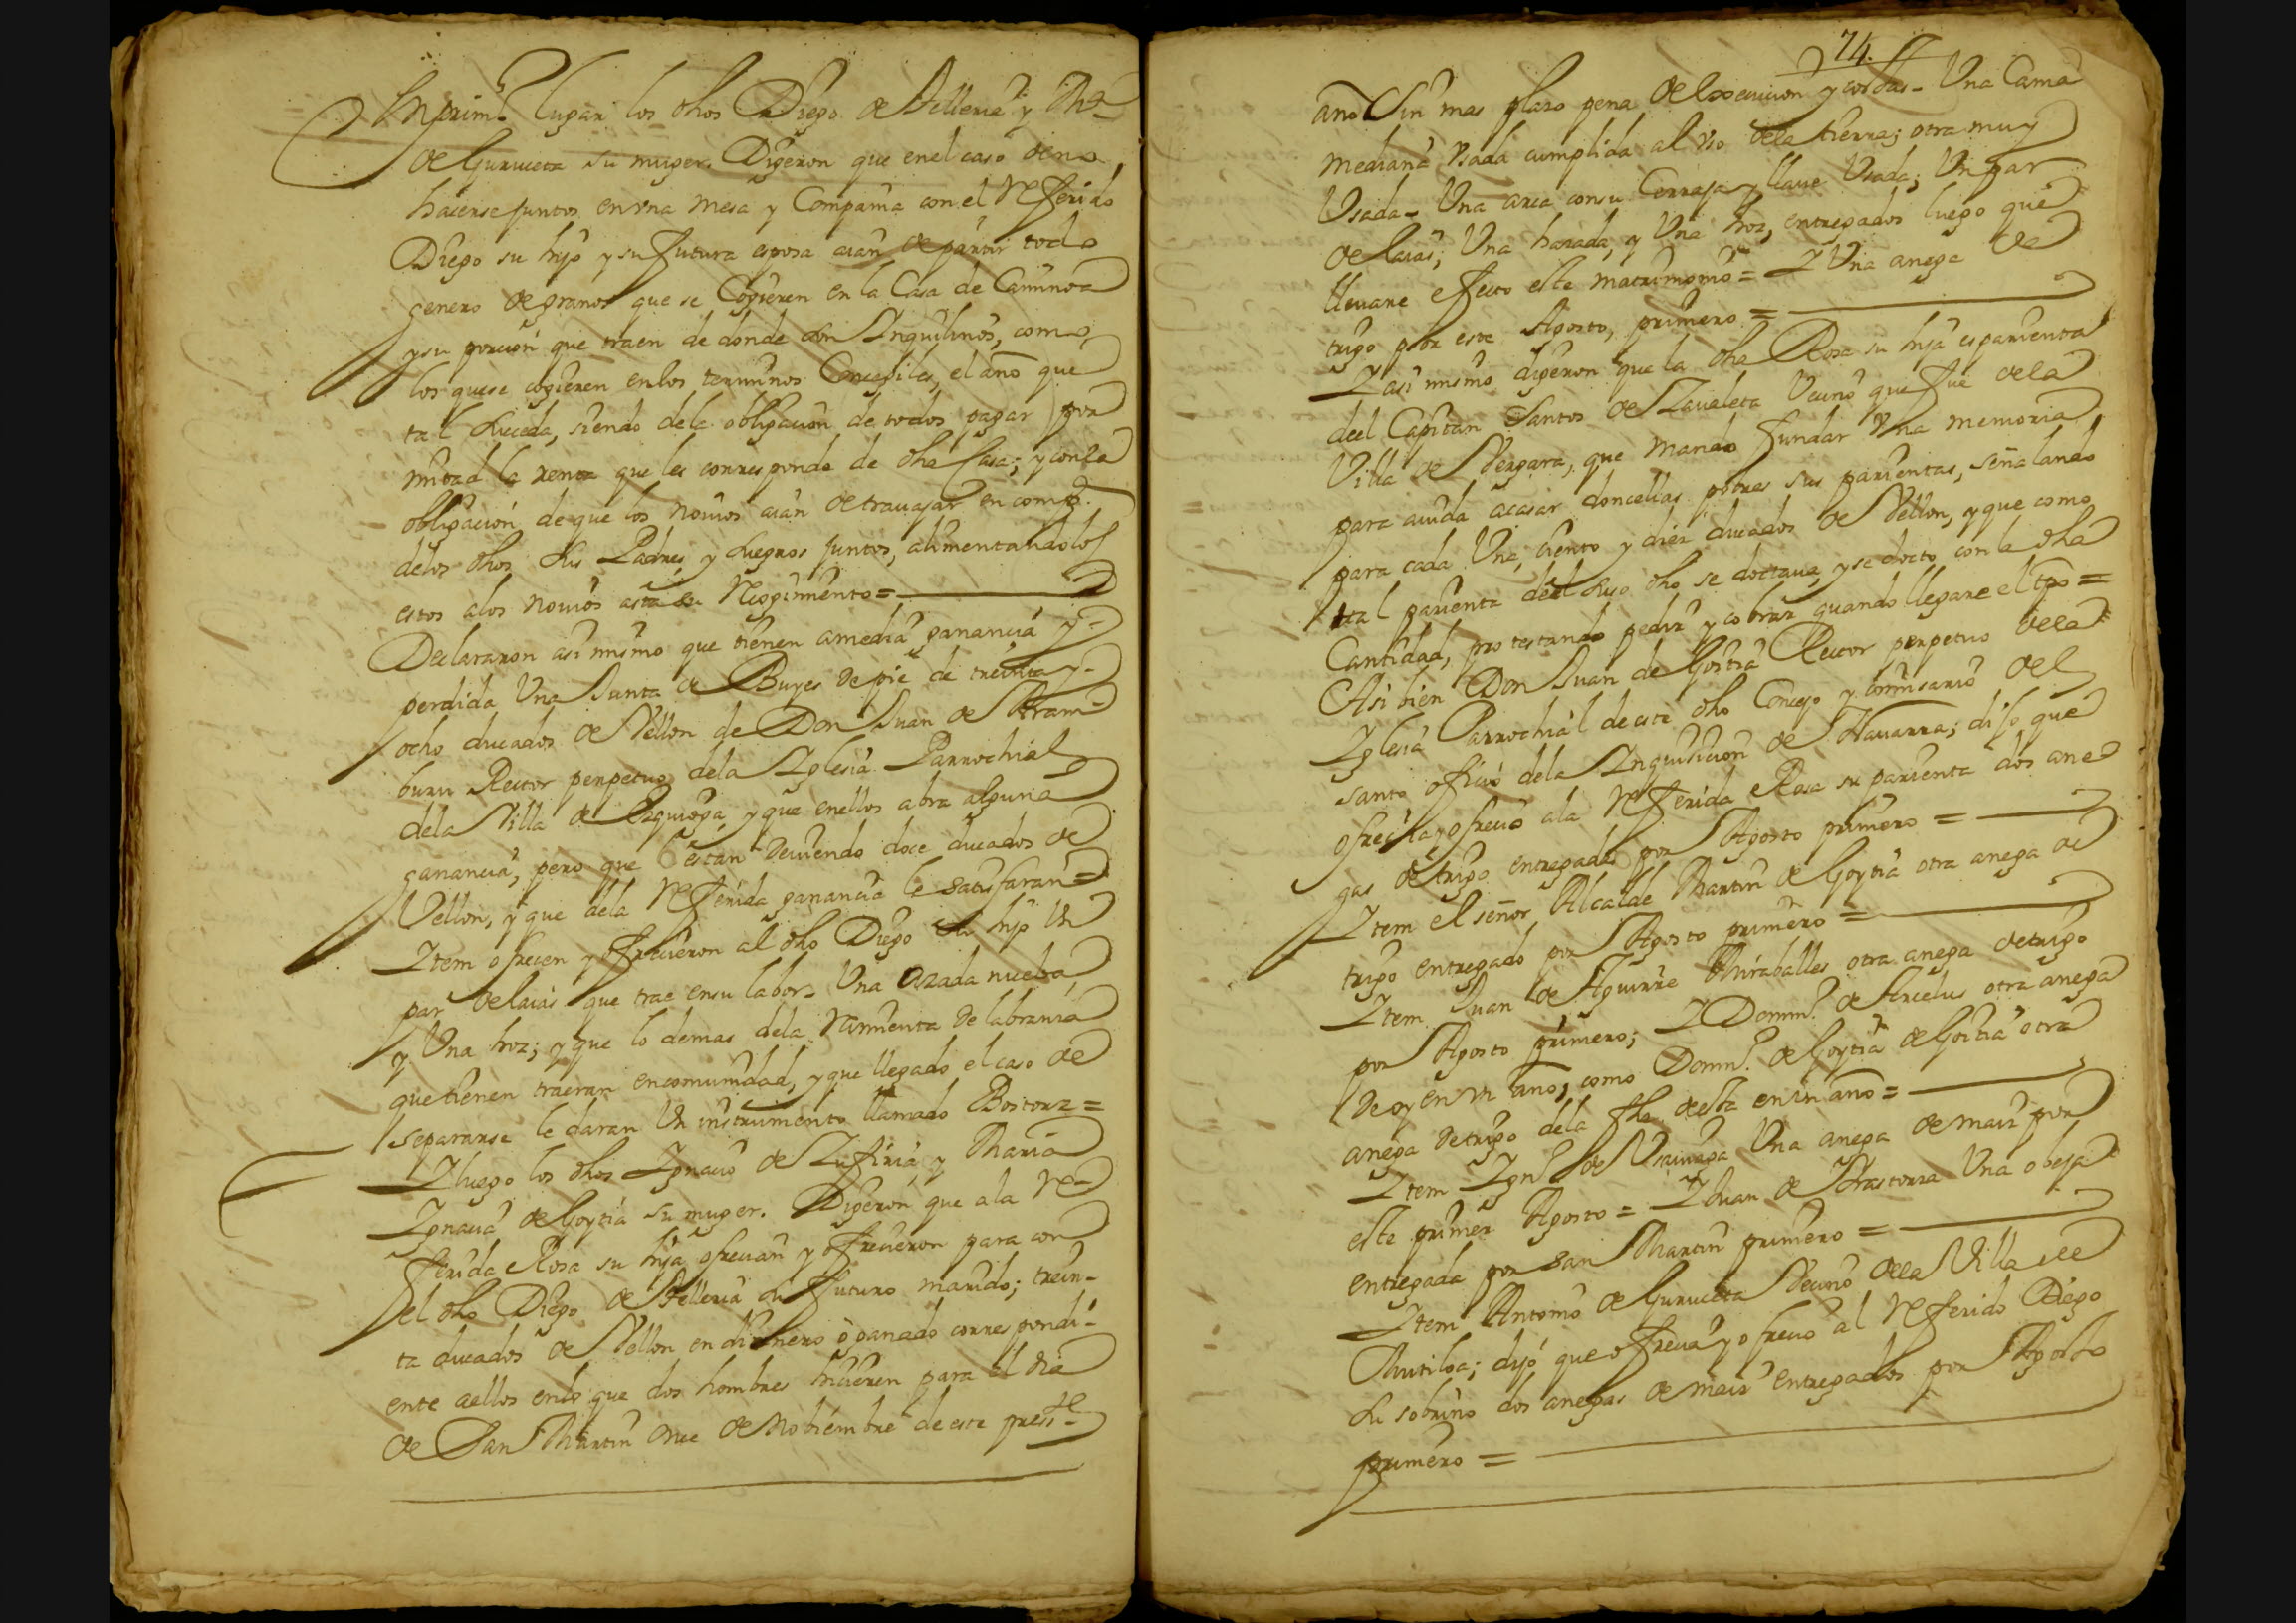 En prim.º lugar los dhos Diego de Telleria y Mª
de Guruceta su muger. Digeron que enel caso de no
hacerse juntos en vna mesa y Compañia con el Referido
Diego su hijo y su futura esposa aian de partir todo
genero de granos que se Cogieren en la Casa de Caminoa
y su porcion que traen de donde son Inquilinos, como
los que se cogieren en los terminos Concegiles, el año que
tal suceda, siendo de la obligacion de todos pagar por
mitad la renta que les corresponde de dha Casa; y con la
obligacion de que los novios aian de travajar en comp.ª
delos dhos sus Padres y suegros juntos, alimentandolos
estos alos novios asta su Recogimiento =
Declararon asi mismo que tienen amedia ganancia y
perdida Una Junta de Buyes de pie de treinta y
ocho ducados de Vellon de Don Juan de Aram
buru Rector perpetuo dela Iglesia Parrochial
dela Villa de Ezquioga, y que enellos abra alguna
ganancia, pero que le estan deviendo doce ducados de
Vellon, y que dela Referida ganancia le satisfaran =
Item ofrecen y ofrecieron al dho Diego su hijo Un
par de laias que trae ensu labor. Una azada nueba,
y Una hoz; y que lo demas dela Rarmienta de labranza
que tienen traeran encomunidad, y que llegado el caso de
separarse le daran Un instrumento llamado Bostorz =
I luego los dhos Ignacio de Zufiria, y Maria
Ignacia de Goytia su muger. Digeron que ala Re
ferida Rosa su hija ofrecian y ofrecieron para con
el dho Diego de Telleria su futuro marido; trein-
ta ducados de Vellon en dinnero ò ganado correspondi-
ente aellos en lo que dos hombres hicieren para el dia
de San Martin once de Nobiembre de este press.te
74.
año Sin mas plazo pena de lexecucion y costas - Una Cama
mediana vsada cumplida al vso dela tierra; otra muy
Usada - Una arca con su Cerraja y llave Usada; Un par
de laias; Una hazada, y Una hoz, entregados luego que
llevare efecto este matrimonio = I Una anega de
trigo por este Agosto, primero =
I asi mismo digeron que la dha Rosa su hija es parienta
del Capitan Santos de Zavaleta Vecino que fue dela
Villa de Vergara, que mando fundar Vna memoria
para aiuda acasar doncellas pobres sus parientas, señalando
para cada Una, ciento y diez ducados de Vellon, y que como
tal parienta del suso dho se doctava, y se docto con la dha
Cantidad, protestando pedir y cobrar quando llegare el tpo =
Asi bien Don Juan de Goitia Rector perpetuo dela
Iglesia Parrochial de este dho Concejo y comisario del
santo oficio dela Inquisicion de Navarra; dijo que
ofrecia, y ofrecio ala Referida Rosa su parienta dos ane
gas de trigo entregadas por Agosto primero =
Item el señor Alcalde Martin de Goytia otra anega de
trigo entregado por Agosto primero =
Item Juan de Aguirre Miraballes otra anega de trigo
por Agosto primero; I Domin.º de Arcelus otra anega
de oy en vn año, como Domin.º de Goytia de Goitia otra
anega de trigo dela fha desta en vn año =
Item Ign.º de Vsainaga Una anega de maiz por
este primer Agosto = I Juan de Arastorza Una obeja
entregada por san Martin primero =
Item Antonio de Guruceta Vecino dela Villa de
Mutiloa; dijo que ofrecia y ofrecio al Referido Diego
su sobrino dos anegas de maiz entregados por Agosto
primero =